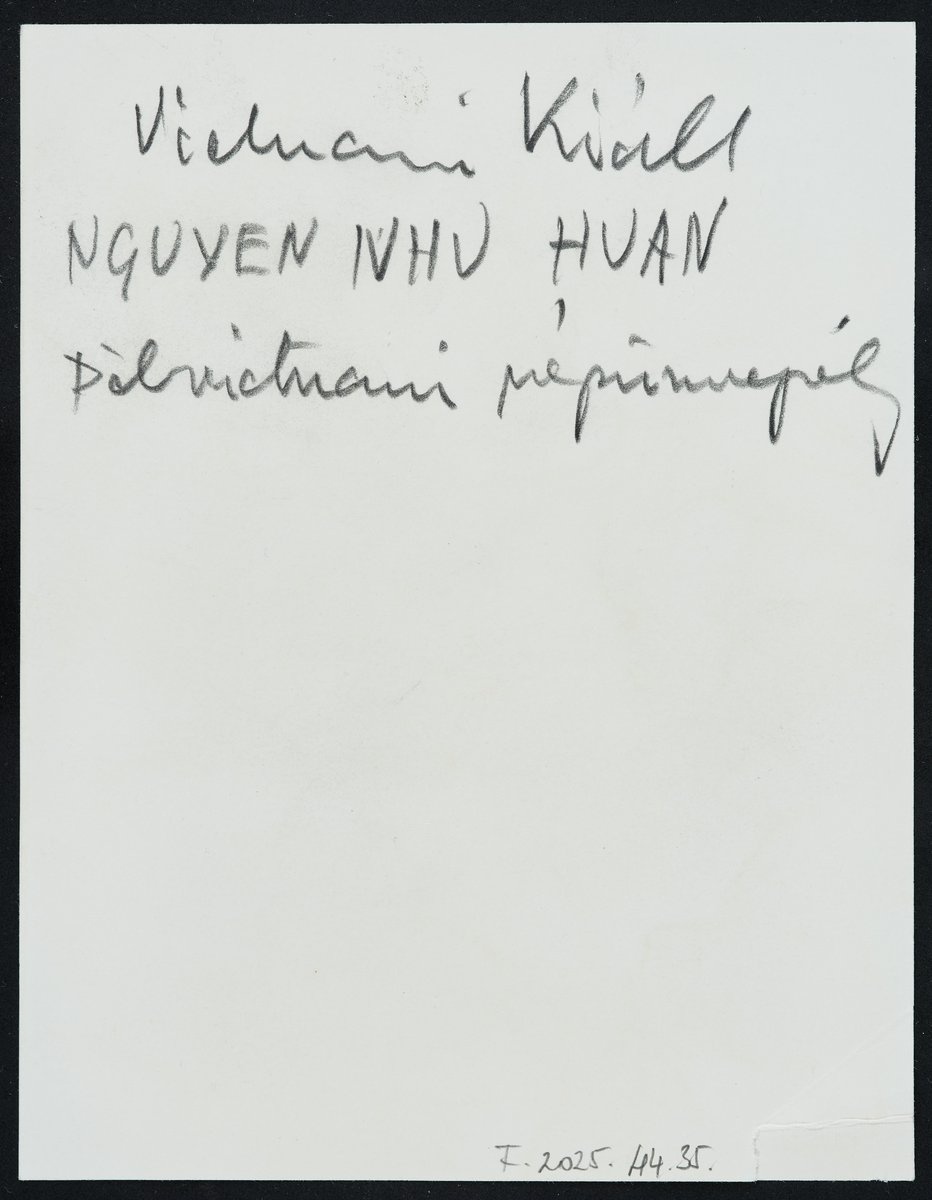 Vietnami Kiáll
NGUYEN NHU HUAN
Délvietnami népünnepély
F. 2025. 44. 35.